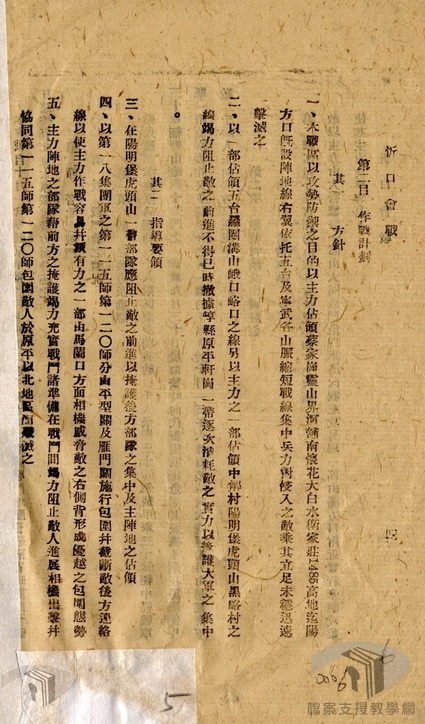 忻口會戰
第二目 作戰計劃
其一 方針
一、本戰區以攻勢防禦之目的以主力佔領蔡家崗靈山界河鋪南懷花大白水衛家莊1488高地迄陽
方口既設陣地線右翼依托五台及寧武各山脈縮短戰線集中兵力對侵入之敵乘其立足未穩迅速
擊滅之
二、以一部佔領五台 峨口峪口之線另以主力之一部佔領中解村陽明堡虎頭山黑峪村之
線竭力阻止敵之前進不得已時撤據崞縣原平軒崗一帶逐次消耗敵之實力以掩護大軍之集中
。
其二 指導要領
三、在陽明堡虎頭山一帶部隊應阻止敵之前進以掩護後方部隊之集中及主陣地之佔領
四、以第一八集團軍之第一一五師第一二〇師分由平型關及雁門關施行包圍并截斷敵後方連絡
線以使主力作戰容易并須有力之一部由馬蘭口方面相機威脅敵之右側背形成優越之包圍態勢
五、主力陣地之部隊藉前方之掩護竭力充實戰鬥諸準備在戰鬥間竭力阻止敵人進展相機出擊并
協同第一一五師第一二〇師包圍敵人於原平以北地區而殲滅之
四
6
0006
5
檔案支援教學網